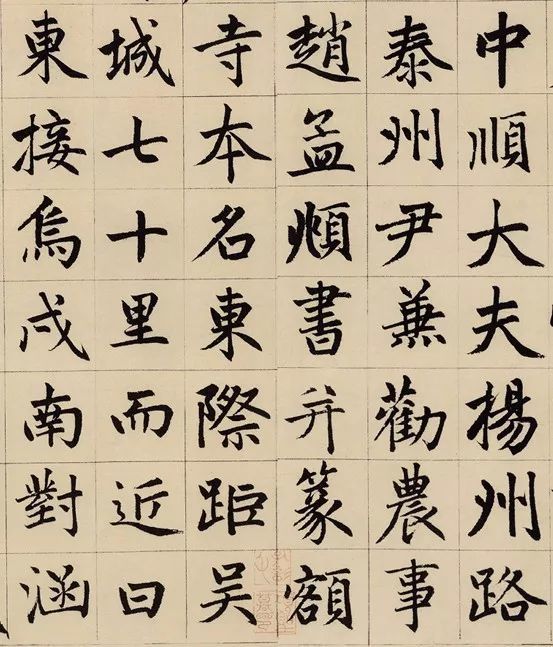 中順大夫楊州路
泰州尹兼勸農事
趙孟頫書并篆額
寺本名東際距吳
城七十里而近曰
東接烏戍南對涵